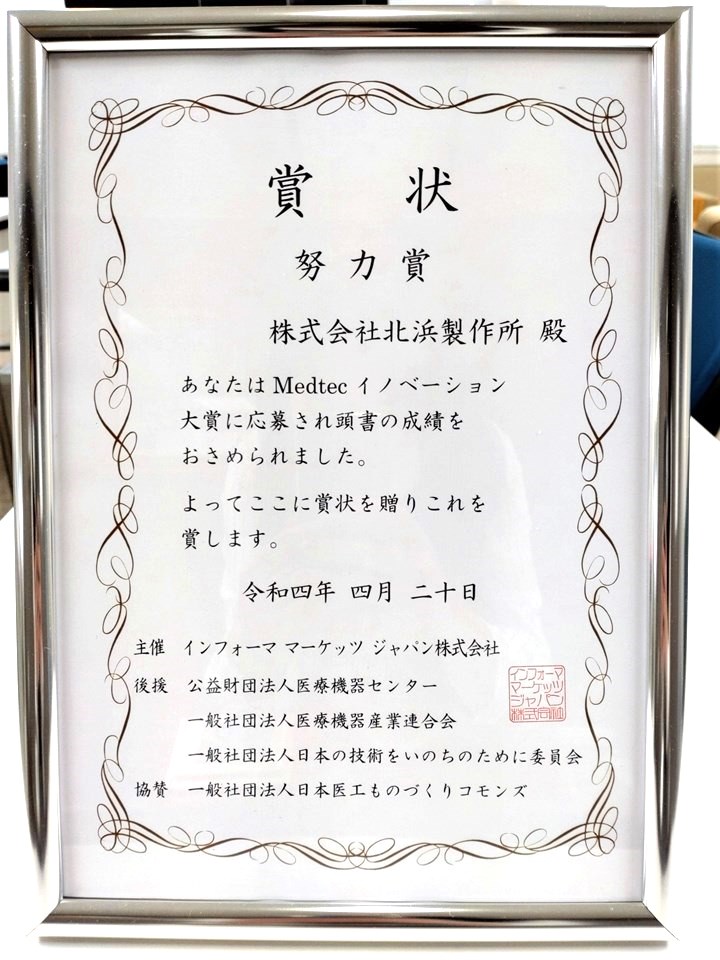 賞 状
努力賞
株式会社北浜製作所 殿
あなたは Medtec イノベーション
大賞に応募され頭書の成績を
おさめられました。
よってここに賞状を贈りこれを
賞します。
令和四年 四月 二十日
主催 インフォーマ マーケッツ ジャパン株式会社
後援 公益財団法人医療機器センター
一般社団法人医療機器産業連合会
一般社団法人日本の技術をいのちのために委員会
協賛 一般社団法人日本医工ものづくりコモンズ
インフォーマ
マーケッツ
ジャパン
株式会社